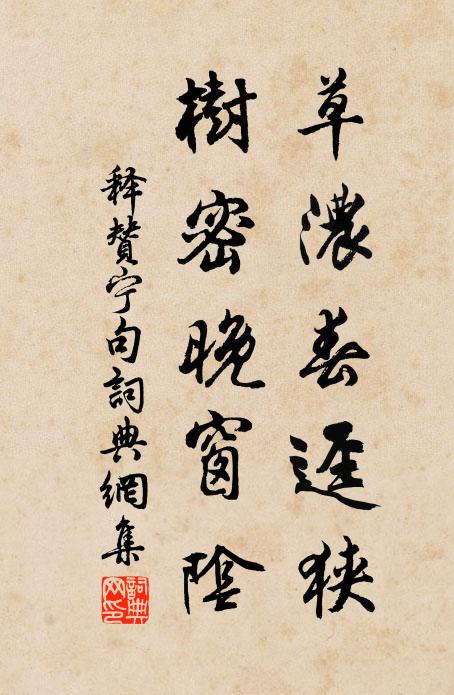 草濃春逕狹
樹密晚窗陰
释贊宁句詞典網集
詞典网印